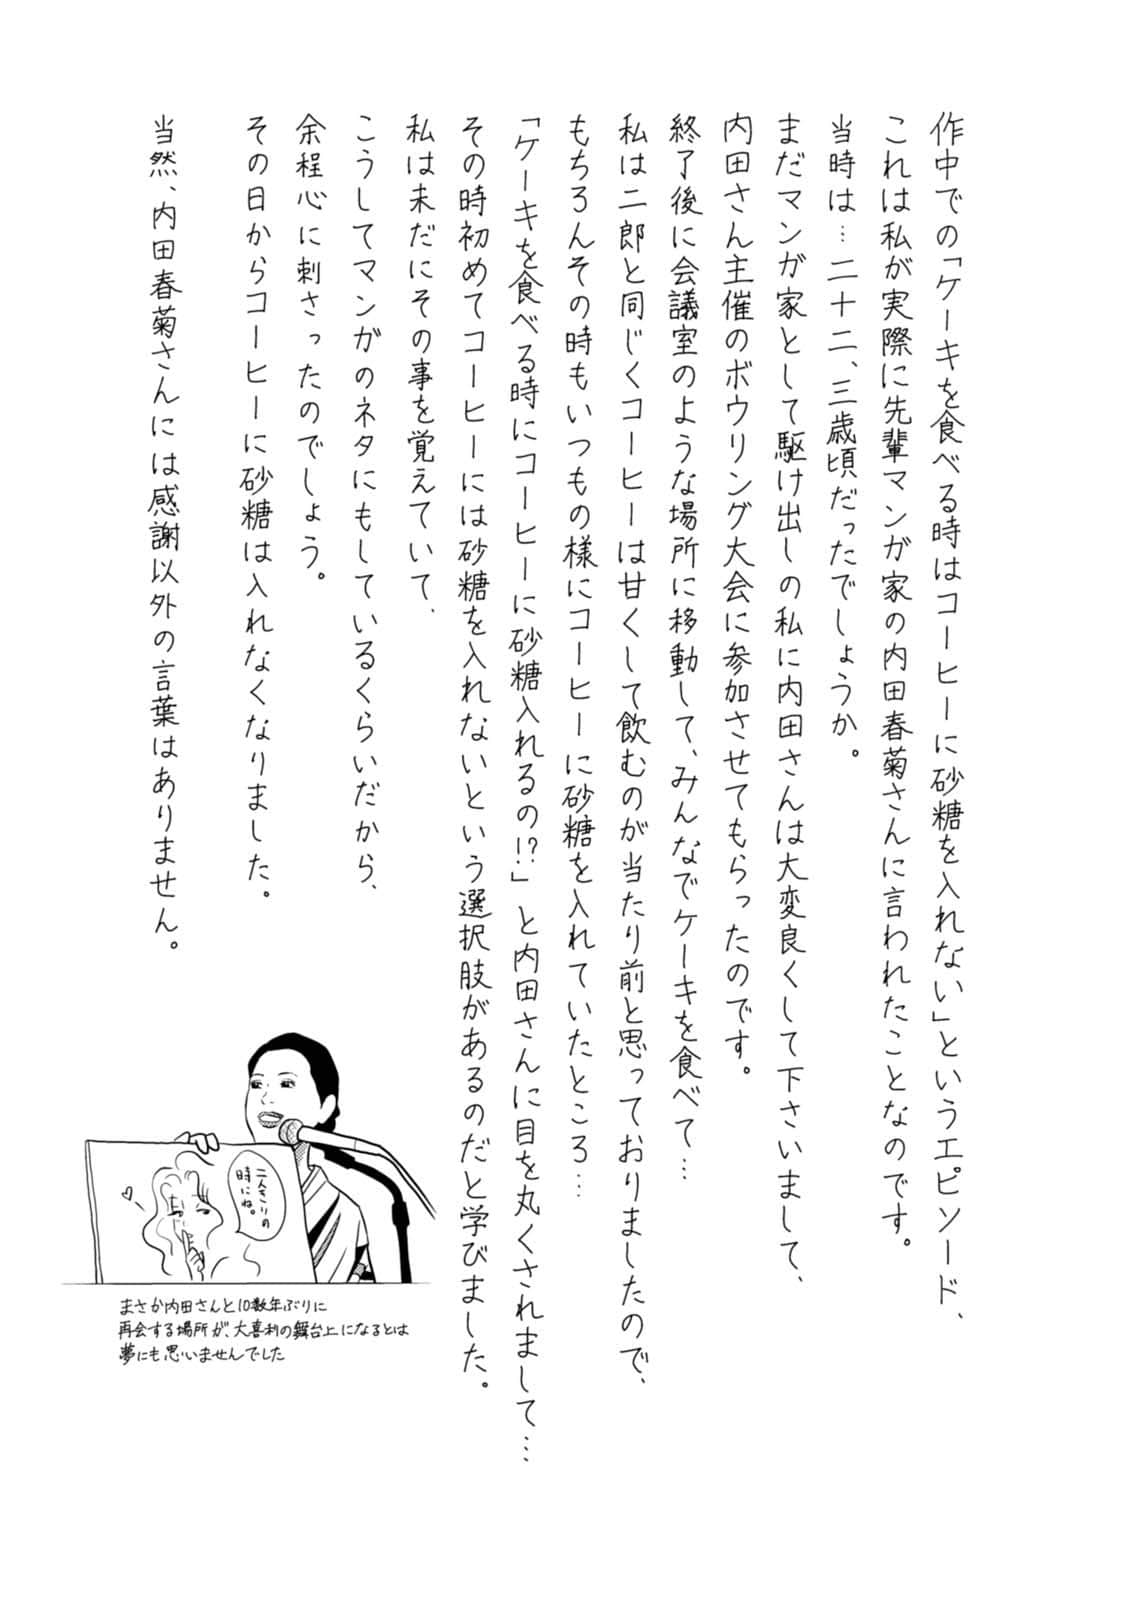 作中での「ケーキを食べる時はコーヒーに砂糖を入れない」というエピソード、
これは私が実際に先輩マンガ家の内田春菊さんに言われたことなのです。
当時は…二十二、三歳頃だったでしょうか。
まだマンガ家として駆け出しの私に内田さんは大変良くして下さいまして、
内田さん主催のボウリング大会に参加させてもらったのです。
終了後に会議室のような場所に移動して、みんなでケーキを食べて…
私は二郎と同じくコーヒーは甘くして飲むのが当たり前と思っておりましたので、
もちろんその時もいつもの様にコーヒーに砂糖を入れていたところ…
「ケーキを食べる時にコーヒーに砂糖入れるの!?」と内田さんに目を丸くされまして…
その時初めてコーヒーには砂糖を入れないという選択肢があるのだと学びました。
私は未だにその事を覚えていて、
こうしてマンガのネタにもしているくらいだから、
余程心に刺さったのでしょう。
その日からコーヒーに砂糖は入れなくなりました。
当然、内田春菊さんには感謝以外の言葉はありません。
二人きりの
時にね。
まさか内田さんと10数年ぶりに
再会する場所が、大喜利の舞台上になるとは
夢にも思いませんでした